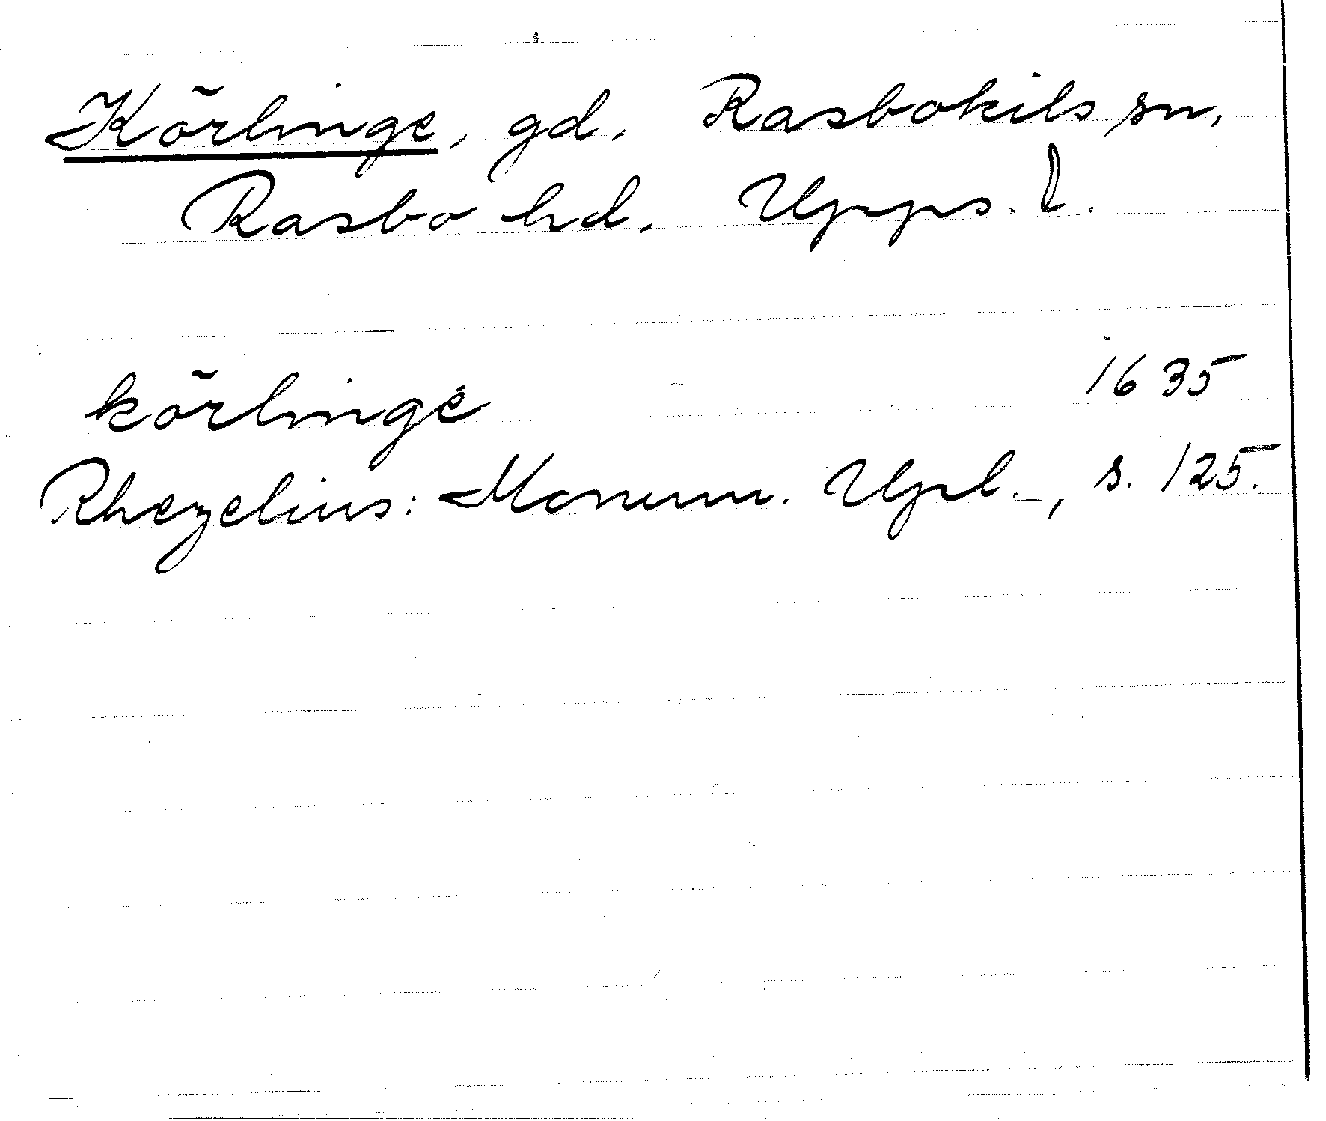 Körlinge, gd, Rasbokils sn,
Rasbo hd. Upps. l.
körlinge 1635
Rhezelius: Monum. Upl., s. 125.